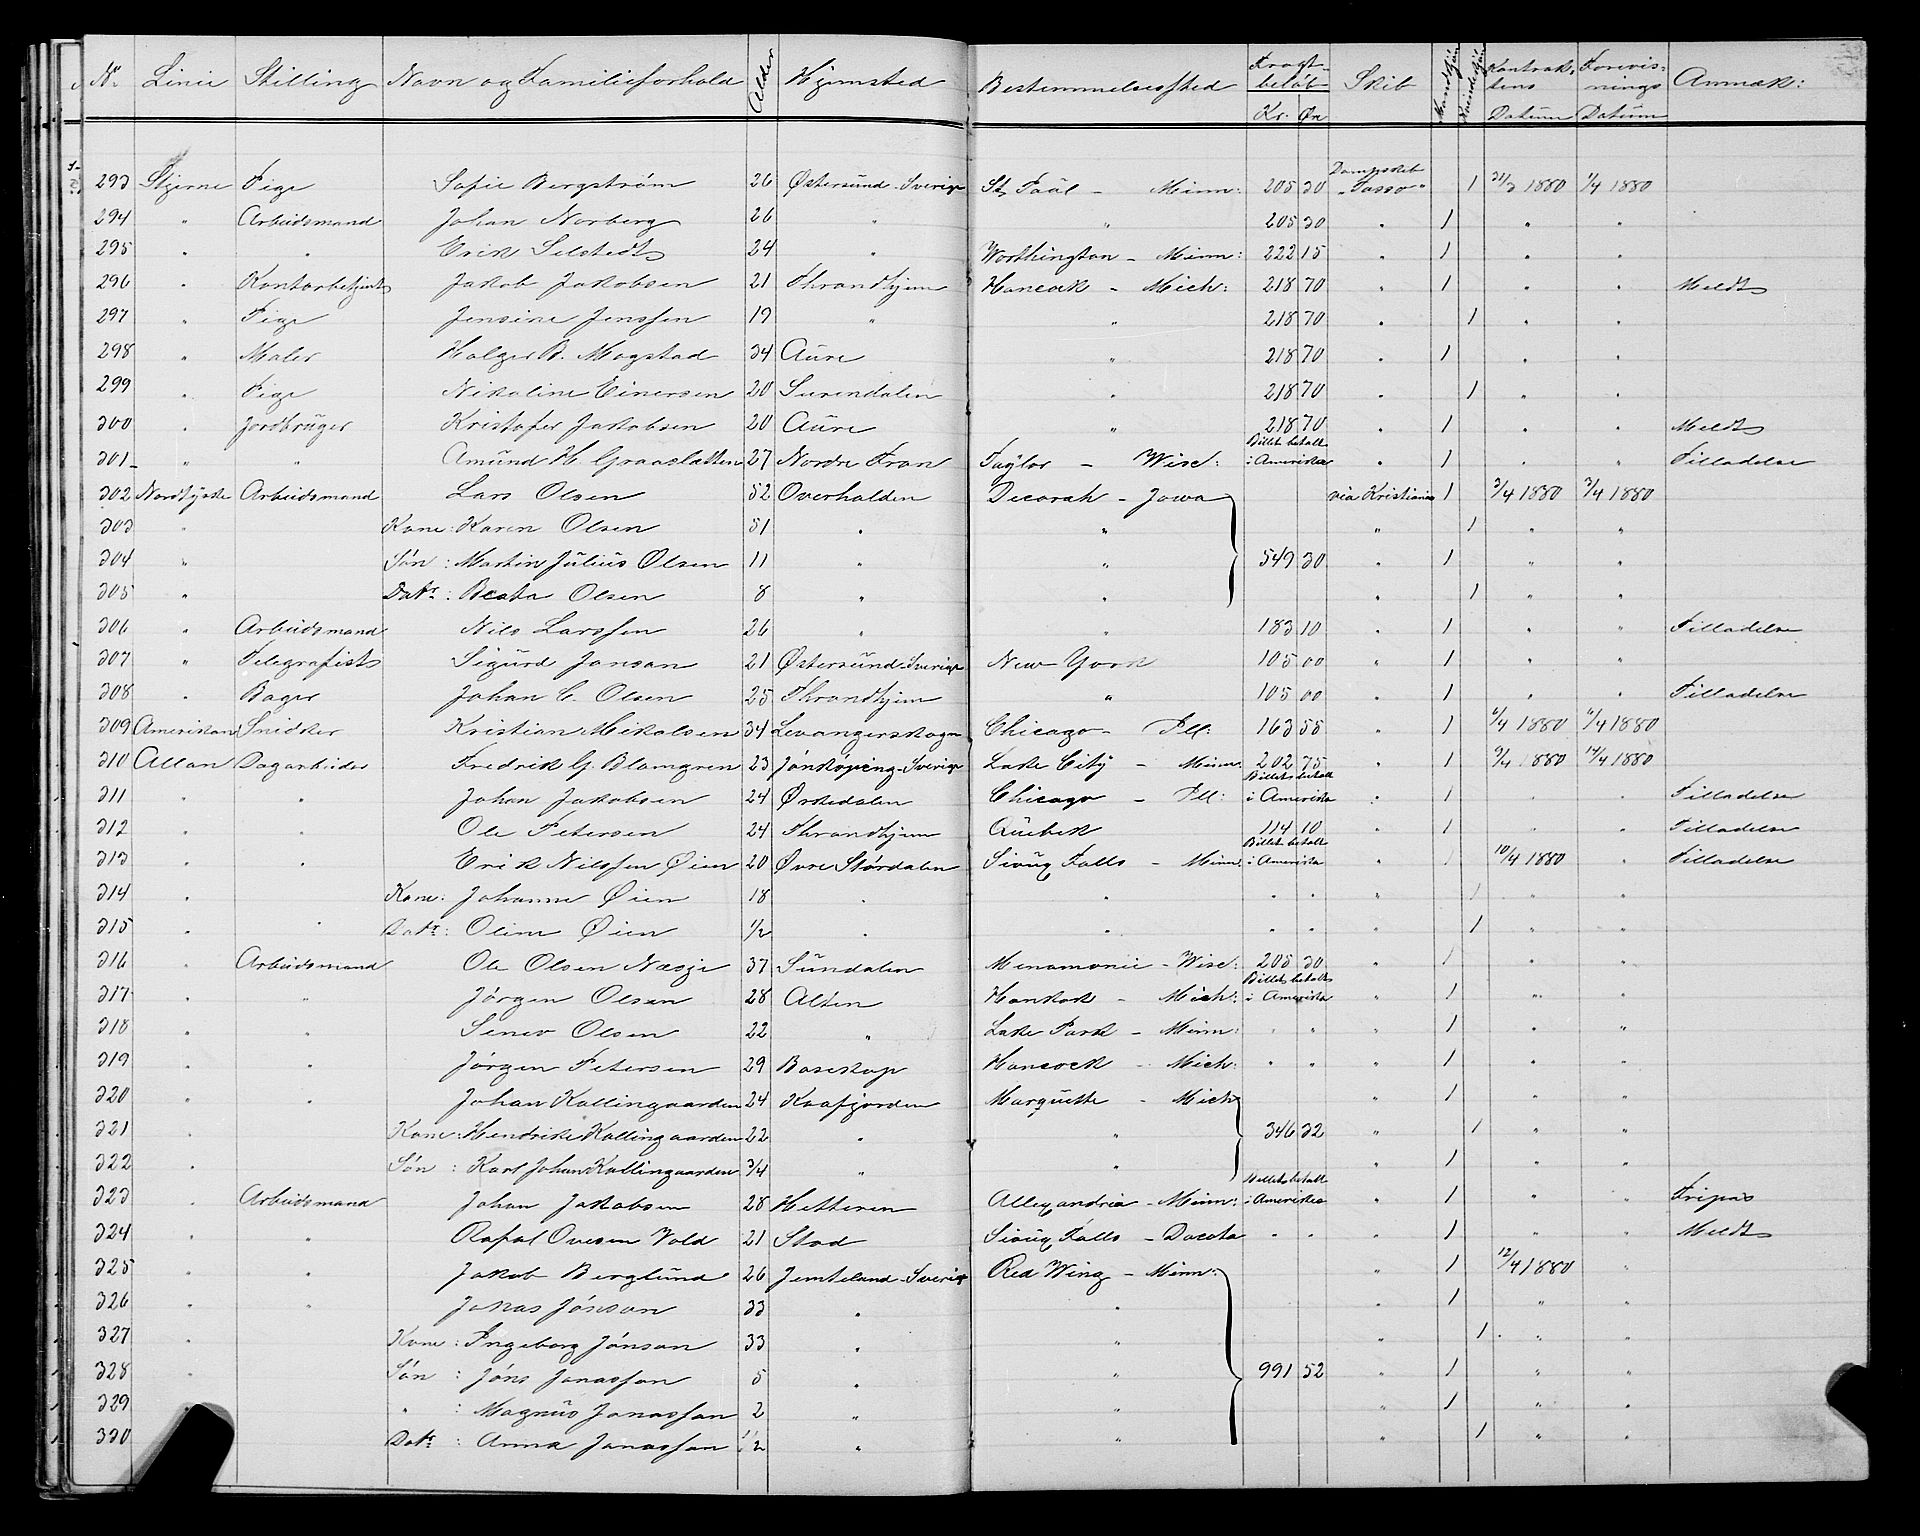 No Linie Stilling Navn og Familieforhold Alder Hjemsted Bestemmelsessted Fragtbeløb Kr. Øre Skib Mandkjøn Kvindekjøn Kontraktens Datum Forevisnings Datum Anmærk:
293 Stjerne Pige Sofie Bergström 26 Østersund-Sverige St Paul - Minn: 205 30 Dampskib "Tasso" 1 31/3 1880 1/4 1880
294 " Arbeidsmand Johan Norberg 26 " " 205 30 " 1 " "
295 " " Erik Selstedt 24 " Worthington - Minn: 222 15 " 1 " "
296 " Kontorbetjent Jakob Jakobsen 21 Throndhjem Hancock - Mich: 218 70 " 1 " " Meldt
297 " Pige Jensine Jenssen 19 " " 218 70 " 1 " "
298 " Maler Holger B. Magstad 34 Aure " 218 70 " 1 " "
299 " Pige Nikoline Einersen 20 Surendalen " 218 70 " 1 " "
300 " Jordbruger Kristofer Jakobsen 20 Aure " 218 70 " 1 " " Meldt
301 " " Amund H. Graaslatten 27 Nordre Fron Taylor - Wisc: Billet betalt i Amerika " 1 " " Tilladelse
302 Nordtyske Arbeidsmand Lars Olsen 52 Overhalden Decorah - Jowa via Kristiania 1 3/4 1880 3/4 1880
303 " Kone: Karen Olsen 51 " " " 1 " "
304 " Søn: Martin Julius Olsen 11 " " 549 30 " 1 " "
305 " Datr: Beata Olsen 8 " " " 1 " "
306 " Arbeidsmand Nils Larssen 26 " " 183 10 " 1 " " Tilladelse
307 " Telegrafist Sigurd Jonsan 21 Østersund-Sverige New York 105 00 " 1 " "
308 " Bager Johan C. Olsen 25 Throndhjem " 105 00 " 1 " " Tilladelse
309 Amerikan Snidker Kristian Mikalsen 34 Levangerskogn Chicago - Ill: 163 55 " 1 6/4 1880 6/4 1880
310 Allan Dagarbeider Fredrik G. Blomgren 23 Jönköping-Sverige Lake City - Minn: 202 75 " 1 9/4 1880 14/4 1880
311 " " Johan Jakobsen 24 Ørkedalen Chicago - Ill: Billet betalt i Amerika " 1 " " Tilladelse
312 " " Ole Petersen 24 Throndhjem Quebek 114 10 " 1 " " Tilladelse
313 " " Erik Nilssen Øien 20 Øvre Størdalen Sioux Falls - Minn: Billet betalt i Amerika " 1 10/4 1880 " Tilladelse
314 " Kone: Johanne Øien 18 " " " " " 1 " "
315 " " Datr: Oline Øien 1/2 " " " " " 1 " "
316 " Arbeidsmand Ole Olsen Næsje 37 Sundalen Menomonie - Wisc: 205 30 " 1 " "
317 " " Jörgen Olsen 28 Alten Hankok - Mich: Billet betalt i Amerika " 1 " "
318 " " Senev Olsen 22 " Lake Park - Minn: " " " 1 " "
319 " " Jörgen Petersen 29 Bosekop Hancock - Mich: " " " 1 " "
320 " " Johan Kollingaarden 24 Kaafjorden Marquette - Mich " 1 " "
321 " Kone: Hendrike Kollingaarden 22 " " 346 32 " 1 " "
322 " Søn: Karl Johan Kollingaarden 3/4 " " " 1 " "
323 " Arbeidsmand Johan Jakobsen 28 Hitteren Allexandria - Minn: Billet betalt i Amerika " 1 " " Fripas
324 " " Rafal Ovesen Vold 21 Stod Sioux Falls - Dacota " " " 1 " " Meldt
325 " " Jakob Berglund 26 Jemteland-Sverige Red Wing - Minn: " 1 12/4 1880 "
326 " " Jonas Jönson 33 " " " 1 " "
327 " Kone: Ingeborg Jönson 33 " " " 1 " "
328 " Søn: Jöns Jonasson 5 " " 991 52 " 1 " "
329 " " : Magnus Jonasson 2 " " 1 " "
330 Datr: Anna Jonasson 1/2 " " " 1 " "